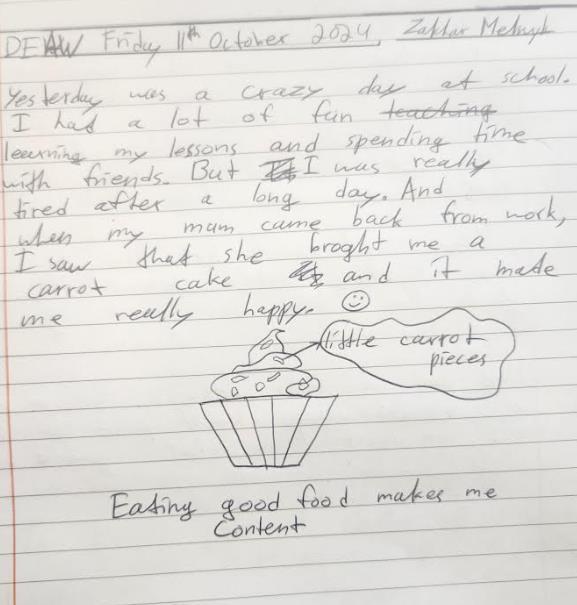 DEAW Friday 11th October 2024, Zakhar Melnyk
Yesterday was a crazy day at school.
I had a lot of fun teaching
leearning my lessons and spending time
with friends. But I was really
tired after a long day. And
when my mum came back from work,
I saw that she broght me a
carrot cake and it made
me really happy. ☺
little carrot
pieces
Eating good food makes me
content